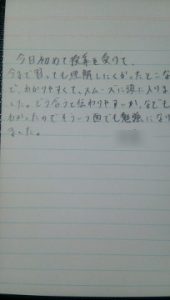 今日初めて授業を受けて、
今まで習っても理解しにくかったところ
で、わかりやすくて、スムーズに頭に入りま
した。どう言うと伝わりやすいか、なども
わかったのでもう一つ面でも勉強にな
りました。